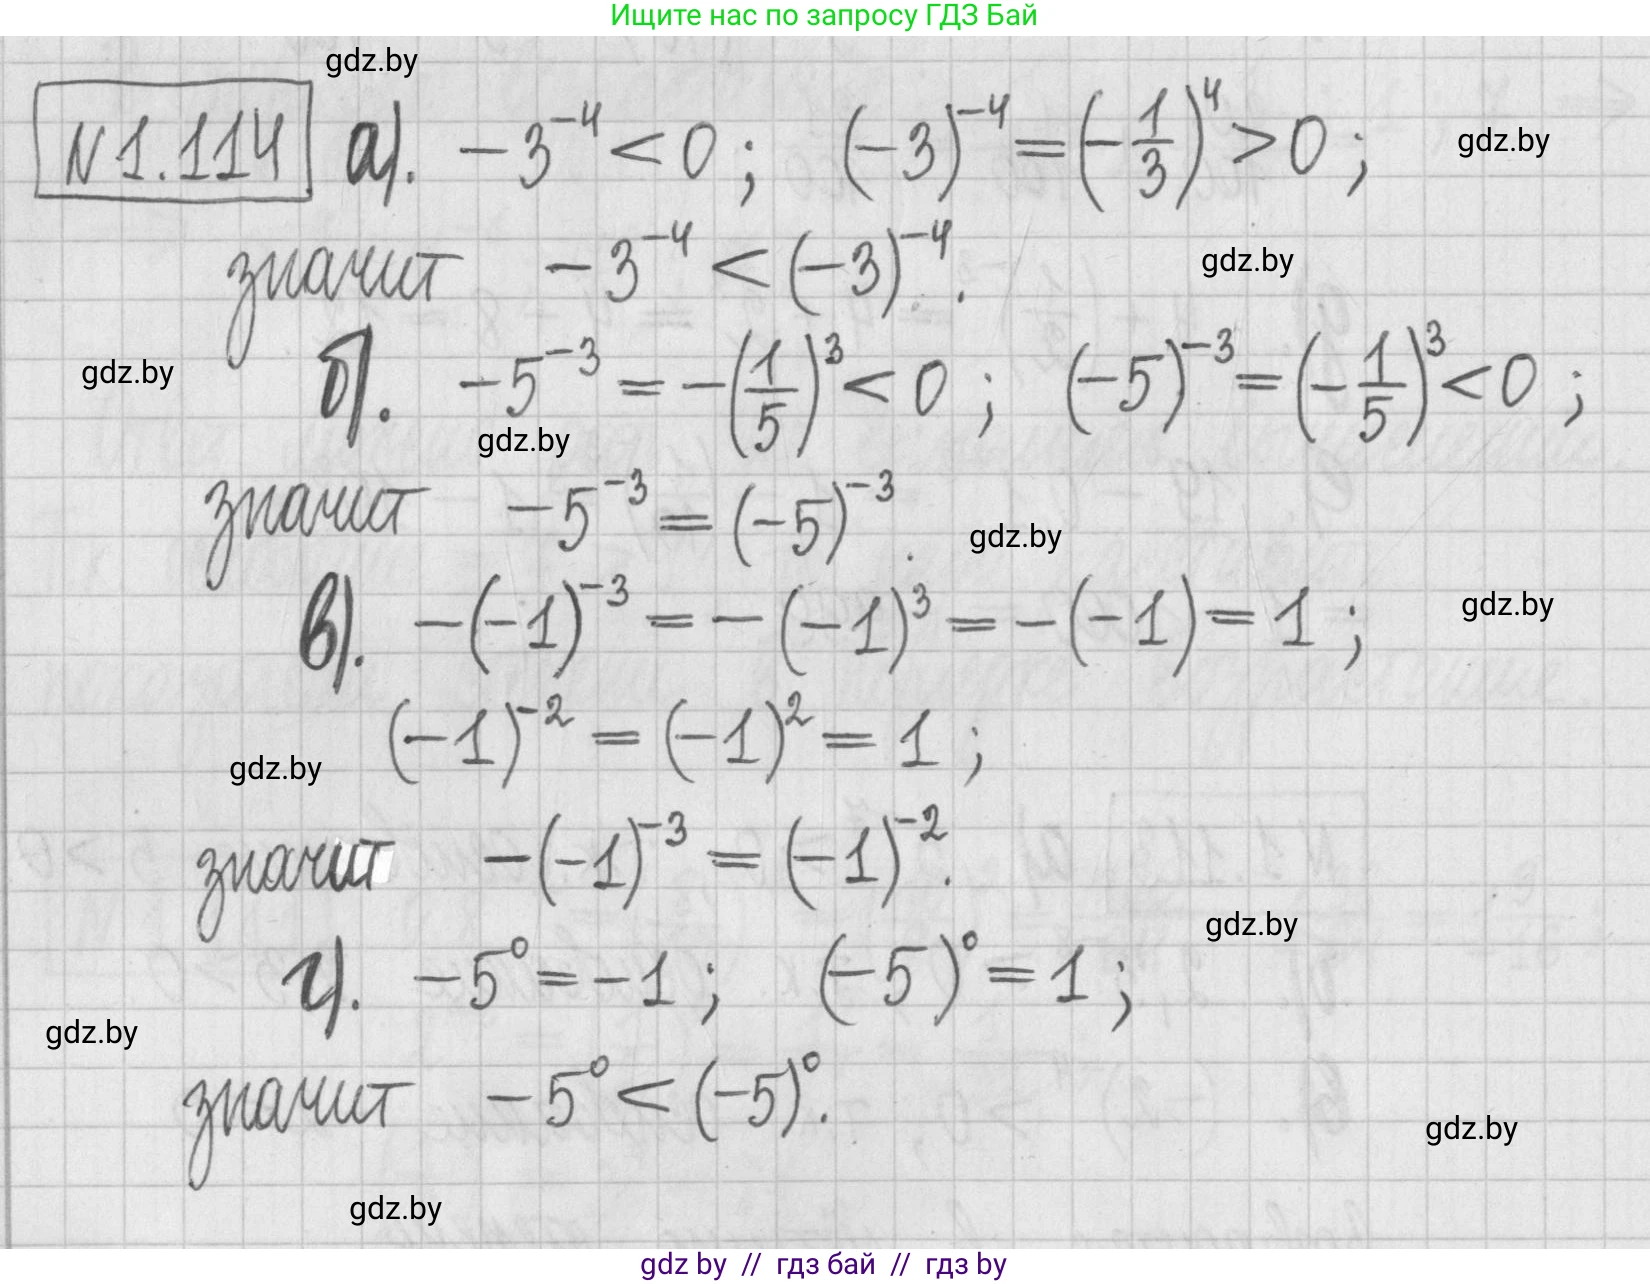 Ищите нас по запросу ГДЗ Бай
gdz.by
№1.114 а). -3⁻⁴ < 0 ; (-3)⁻⁴ = (-1/3)⁴ > 0 ; gdz.by
значит -3⁻⁴ < (-3)⁻⁴. gdz.by
gdz.by б). -5⁻³ = -(1/5)³ < 0 ; (-5)⁻³ = (-1/5)³ < 0 ;
gdz.by
значит -5⁻³ = (-5)⁻³. gdz.by
в). -(-1)⁻³ = -(-1)³ = -(-1) = 1 ; gdz.by
(-1)⁻² = (-1)² = 1 ;
gdz.by
значит -(-1)⁻³ = (-1)⁻².
gdz.by
г). -5⁰ = -1 ; (-5)⁰ = 1 ;
gdz.by
значит -5⁰ < (-5)⁰.
gdz.by
gdz.by
gdz by // гдз бай // гдз by